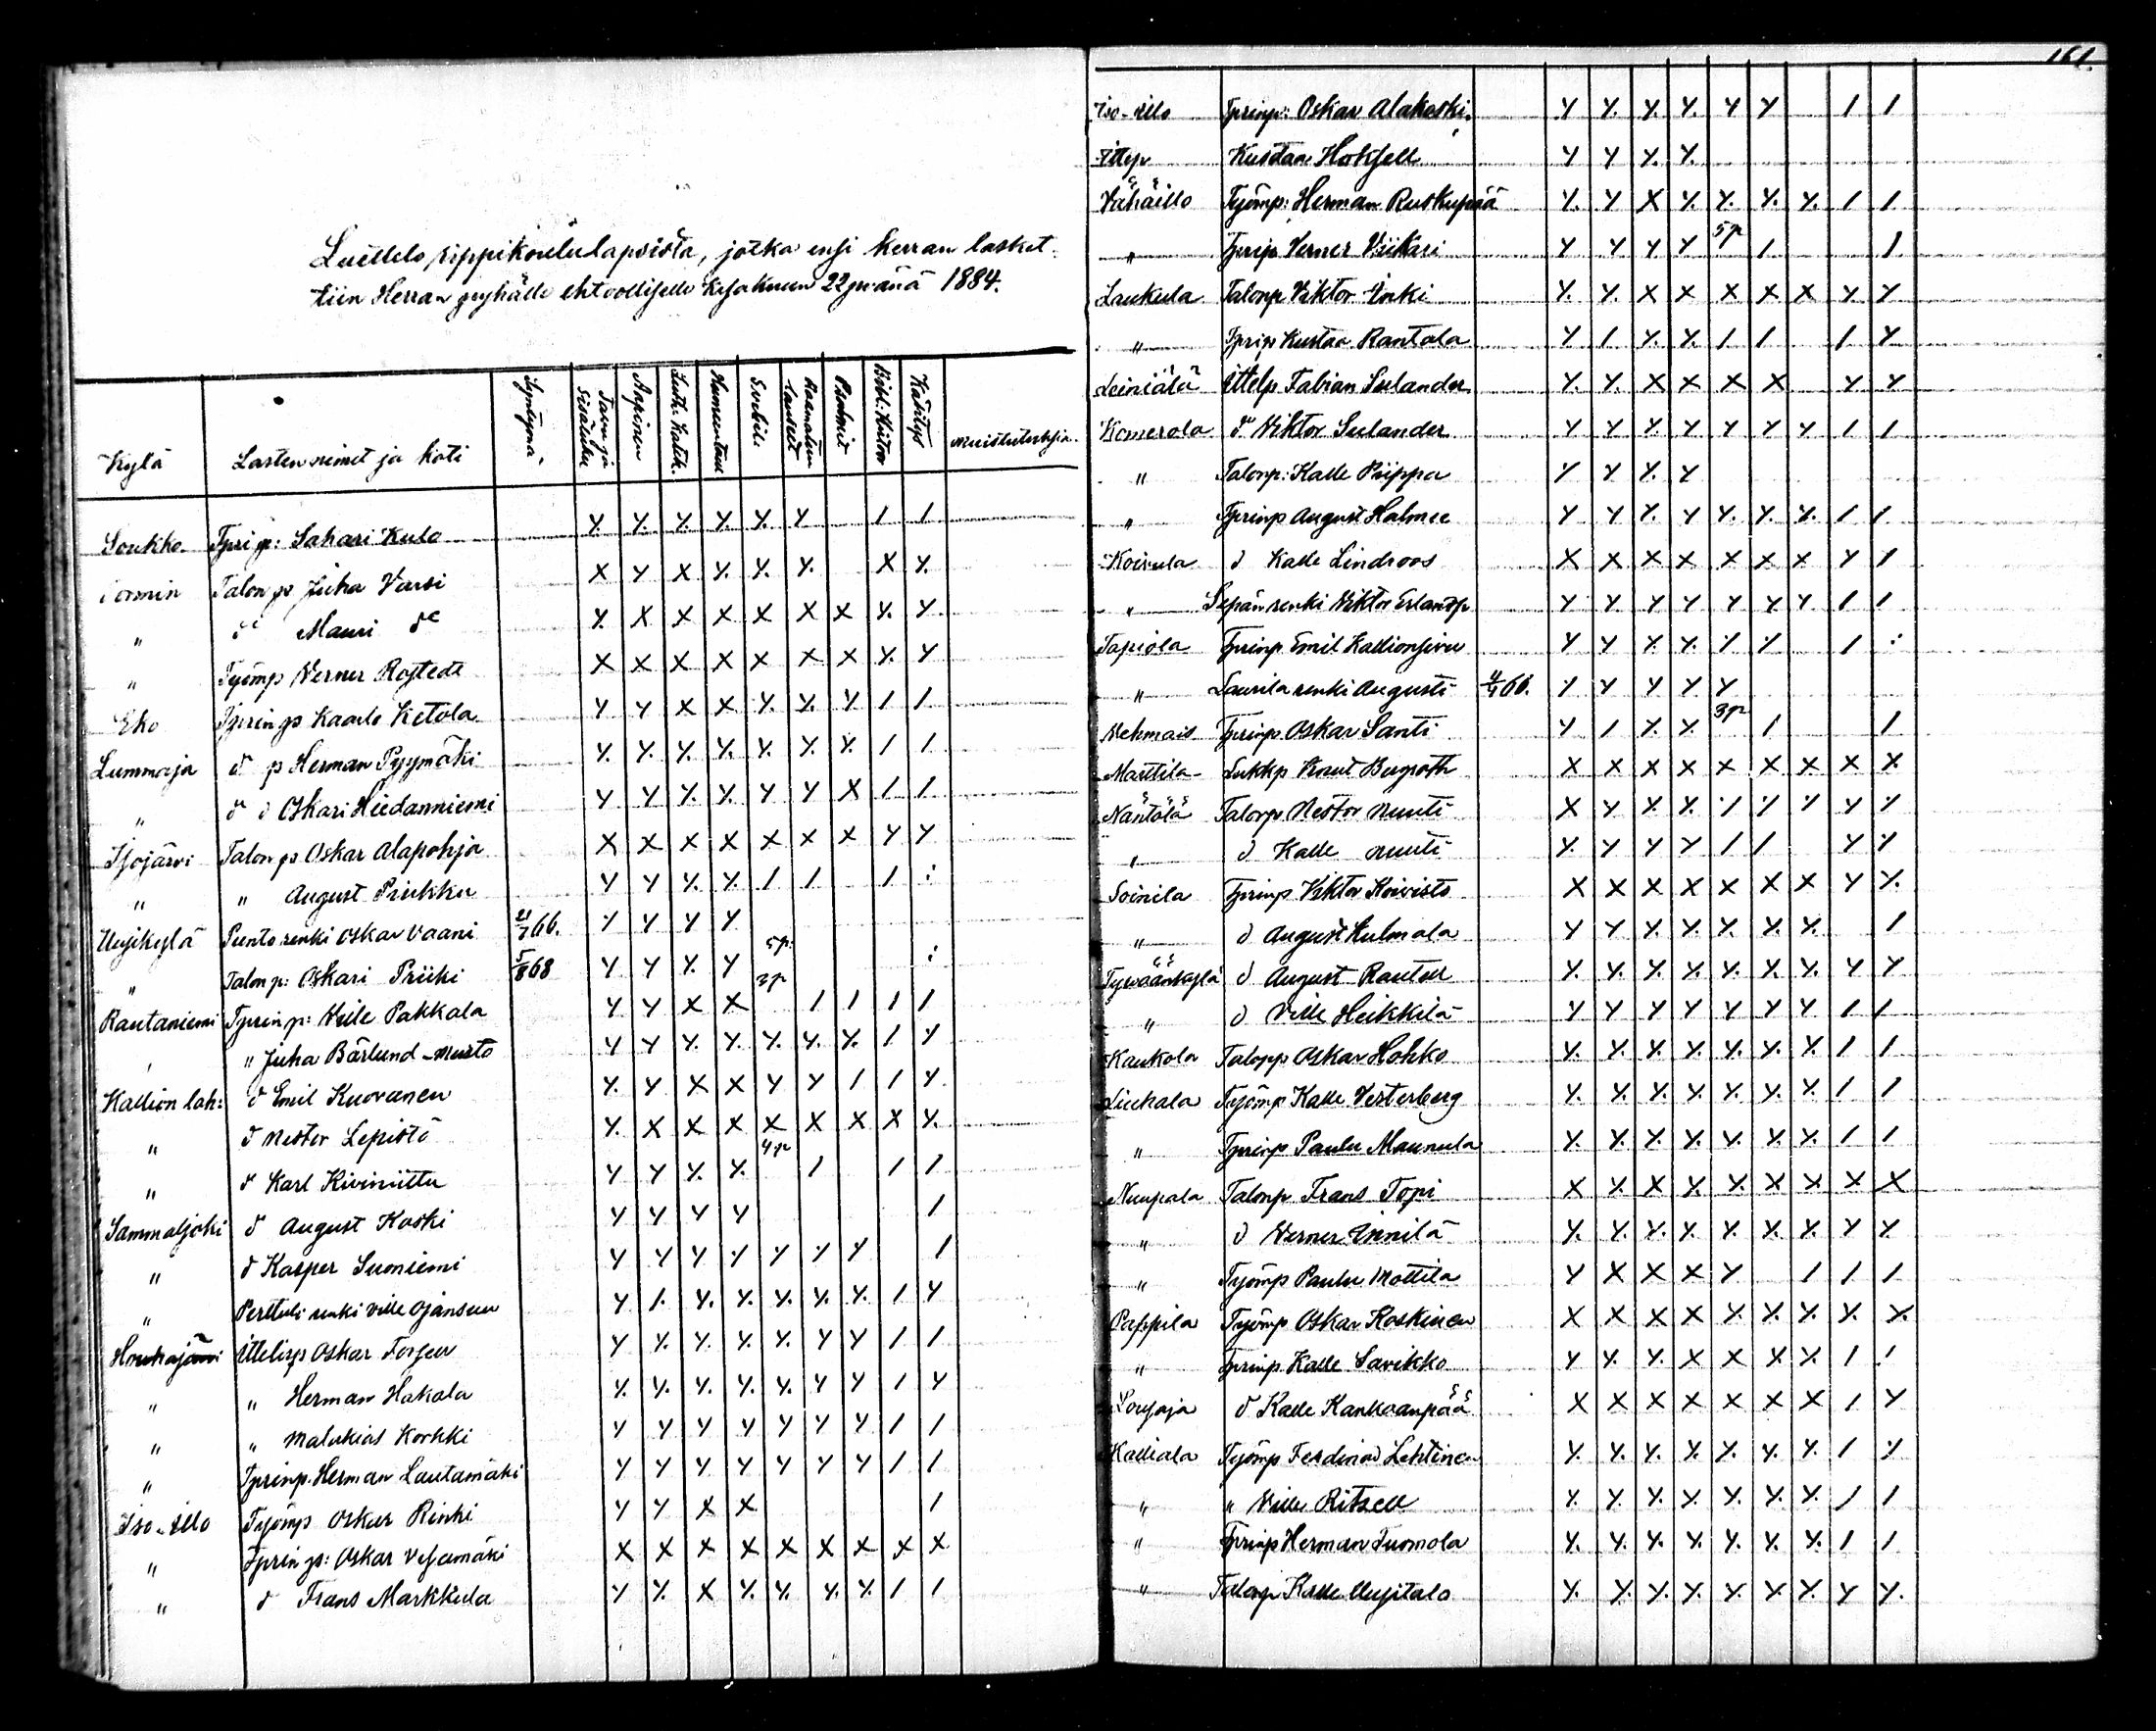 Luettelo rippikoululapsista, jotka ensi kerran lasket-
tiin Herran pyhälle ehtoolliselle kesäkuun 22 p:vänä 1884.
Kylä Lasten nimet ja koti Syntymä Tavu ja Sisäluku Aapinen Luth. Katek. Huoneentaul Svebili Raamatun lauseet Psalmit Bibl. histor Käsitys Muistutuksia
Soukko Tprinp: Sakari Kulo Y. Y. Y. Y. Y. Y / /
Tormin Talonp Juha Varsi X Y X Y. Y. Y. X Y.
" do Mauri do Y. X X X X X X Y. Y
" Työmp Verner Rostedt X X X X X X X Y. Y
Eko Tprinp Kaarlo Ketola Y Y X X Y. Y. Y / /
Lummaja d p Herman Pyymäki Y. Y. Y. Y. Y. Y. Y. / /
" d d Oskari Hiedanniemi Y Y Y. Y. Y Y X / /
Illojärvi Talonp Oskar Alapohja X X X X X X X Y Y
" " August Priukku Y Y Y. Y. / / / :
Uusikylä Punto renki Oskar Vaani 21/7 66. Y Y Y Y
" Talonp: Oskari Priiki 5/8 68 Y Y Y. Y 5p. :
Rautaniemi Tprinp: Ville Pakkala Y Y X X 3p / / / /
" " Juha Bärlund-Musto Y Y Y. Y. Y. Y. Y. / Y
Kallion lah: d Emil Kuovanen Y. Y X X Y Y / / Y
" d Nestor Lepistö Y. X X X X X X X Y.
" d Karl Kiviniittu Y Y Y. Y. 4p / / /
Sammaljoki d August Koski Y Y Y Y /
" d Kasper Suoniemi Y Y Y Y Y Y Y /
" Perttuli renki Ville Ojansuu Y /. Y. Y. Y. Y. Y. / Y
Houkajärvi Ittelisp Oskar Forsen Y Y. Y. Y. Y. Y Y / /
" " Herman Hakala Y. Y. Y. Y. Y. Y Y / Y
" " Malakias Korkki Y Y Y Y Y Y Y / /
" Tprinp. Herman Lautamäki Y Y Y Y Y Y Y / /
Iso-Illo Työmp Oskar Rinki Y Y X X /
" Tprinp: Oskar Vesamäki X X X X X X X X X
" d Frans Markkula Y Y. X Y. Y. Y. Y. / /
161.
Iso-Illo Tprinp: Oskar Alakoski Y Y. Y. Y. Y Y / /
Ittlp Kustaa Hoksell Y Y Y. Y.
Vähäillo Työmp: Herman Ruskeepää Y. Y X Y. Y. Y. Y. / /
" Tprip Verner Viikari Y Y Y Y 5p / /
Laukula Talonp Viktor Inki Y. Y. X X X X X Y Y
" Tprip Kustaa Rantala Y / Y. Y. / / / Y
Leiniälä Ittelp Fabian Selander Y. Y. X X X X Y Y
Komerola do Viktor Selander Y Y Y. Y Y Y Y / /
" Talonp: Kalle Piippa Y Y Y. Y
" Tprinp August Halmee Y Y Y. Y Y. Y. Y. / /
Koivula d Kalle Lindroos X X X X X X X Y /
" Sepän renki Viktor Erlandp Y Y Y Y Y Y Y / /
Tapiola Tprinp Emil Kallionsivu Y Y Y. Y. Y Y. / :
" Laurila renki Augusti 4/4 66. Y Y Y Y Y
Nehmais Tprinp Oskar Santi Y / Y. Y. 3p / /
Marttila Lukkp Knut Bergroth X X X X X X X X X
Näntölä Talonp Nestor Nuuti X Y Y. Y. Y Y Y Y Y
" d Kalle Nuuti Y. Y Y Y / / Y Y
Soinila Tprinp Viktor Koivisto X X X X X X X Y Y.
" d August Hulmala Y Y Y. Y. Y. Y. Y. /
Tyrväänkylä d August Rautee Y. Y. Y. Y. Y. Y. Y. Y Y
" d Ville Heikkilä Y Y Y Y Y Y Y / /
Kaukola Talonp Oskar Hohko Y. Y. Y. Y. Y. Y. Y. / /
Liuhala Työmp Kalle Vesterberg Y. Y. Y. Y. Y. Y. Y. / /
" Tprinp Paulu Maunula Y. Y. Y. Y. Y. Y. Y. / /
Nuupala Talonp Frans Topi X Y. X Y. Y. X X X X
" d Verner Innilä Y. Y. Y. Y. Y. Y. Y. Y Y
" Työmp Paulu Mottila Y X X X Y / / /
Pappila Työmp Oskar Koskinen X X X X Y. Y. Y. Y. X.
" Tprinp Kalle Savikko Y Y. Y. X X X Y. / /
Loujaja d Kalle Kankaanpää X X X X X X X / Y
Kalliala Työmp Ferdinand Lehtinen Y. Y. Y. Y. Y. Y. Y. / Y
" " Ville Ritsell Y. Y. Y. Y. Y. Y. Y. / /
" Tprinp Herman Tuomola Y. Y. Y. Y. Y. Y. Y. / /
" Talonp Kalle Uusitalo Y. Y. Y. Y. Y. Y. Y. Y Y.